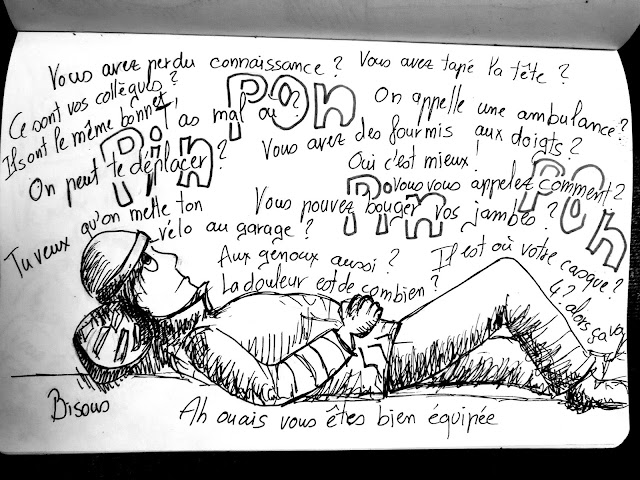 Vous avez perdu connaissance ?
Vous avez tapé la tête ?
Ce sont vos collègues ?
Ils ont le même bonnet
T'as mal où ?
PON
On appelle une ambulance ?
PIN
Vous avez des fourmis aux doigts ?
On peut te déplacer ?
Oui c'est mieux !
Vous vous appelez comment ?
PIN
PON
Vous pouvez bouger vos jambes ?
Tu veux qu'on mette ton
vélo au garage ?
Aux genoux aussi ?
Il est où votre casque ?
La douleur est de combien ?
4 ? alors ça va
Bisous
Ah ouais vous êtes bien équipée